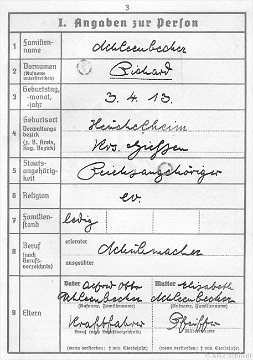 3
I. Angaben zur Person
1 Familien-
name
Schleenbecker
2 Vornamen
(Rufname
unterstreichen)
Richard
3 Geburtstag,
-monat,
-jahr
3. 4. 13.
4 Geburtsort
Verwaltungs-
bezirk
(z. B. Kreis,
Reg. Bezirk)
Heuchelheim
Krs. Giessen
5 Staats-
angehörig-
keit
Reichsangehöriger
6 Religion
ev.
7 Familien-
stand
ledig
8 Beruf
(nach
Berufs-
verzeichnis)
erlernter
Schuhmacher
ausgeübter
9 Eltern
Vater Alfred Otto
Schleenbecker
(Rufname, Familienname)
Kraftfahrer
(wenn verstorben: † und Sterbejahr)
Mutter Elisabeth
Schleenbecker
(Rufname, Familienname)
Pfeiffer
(wenn verstorben: † und Sterbejahr)